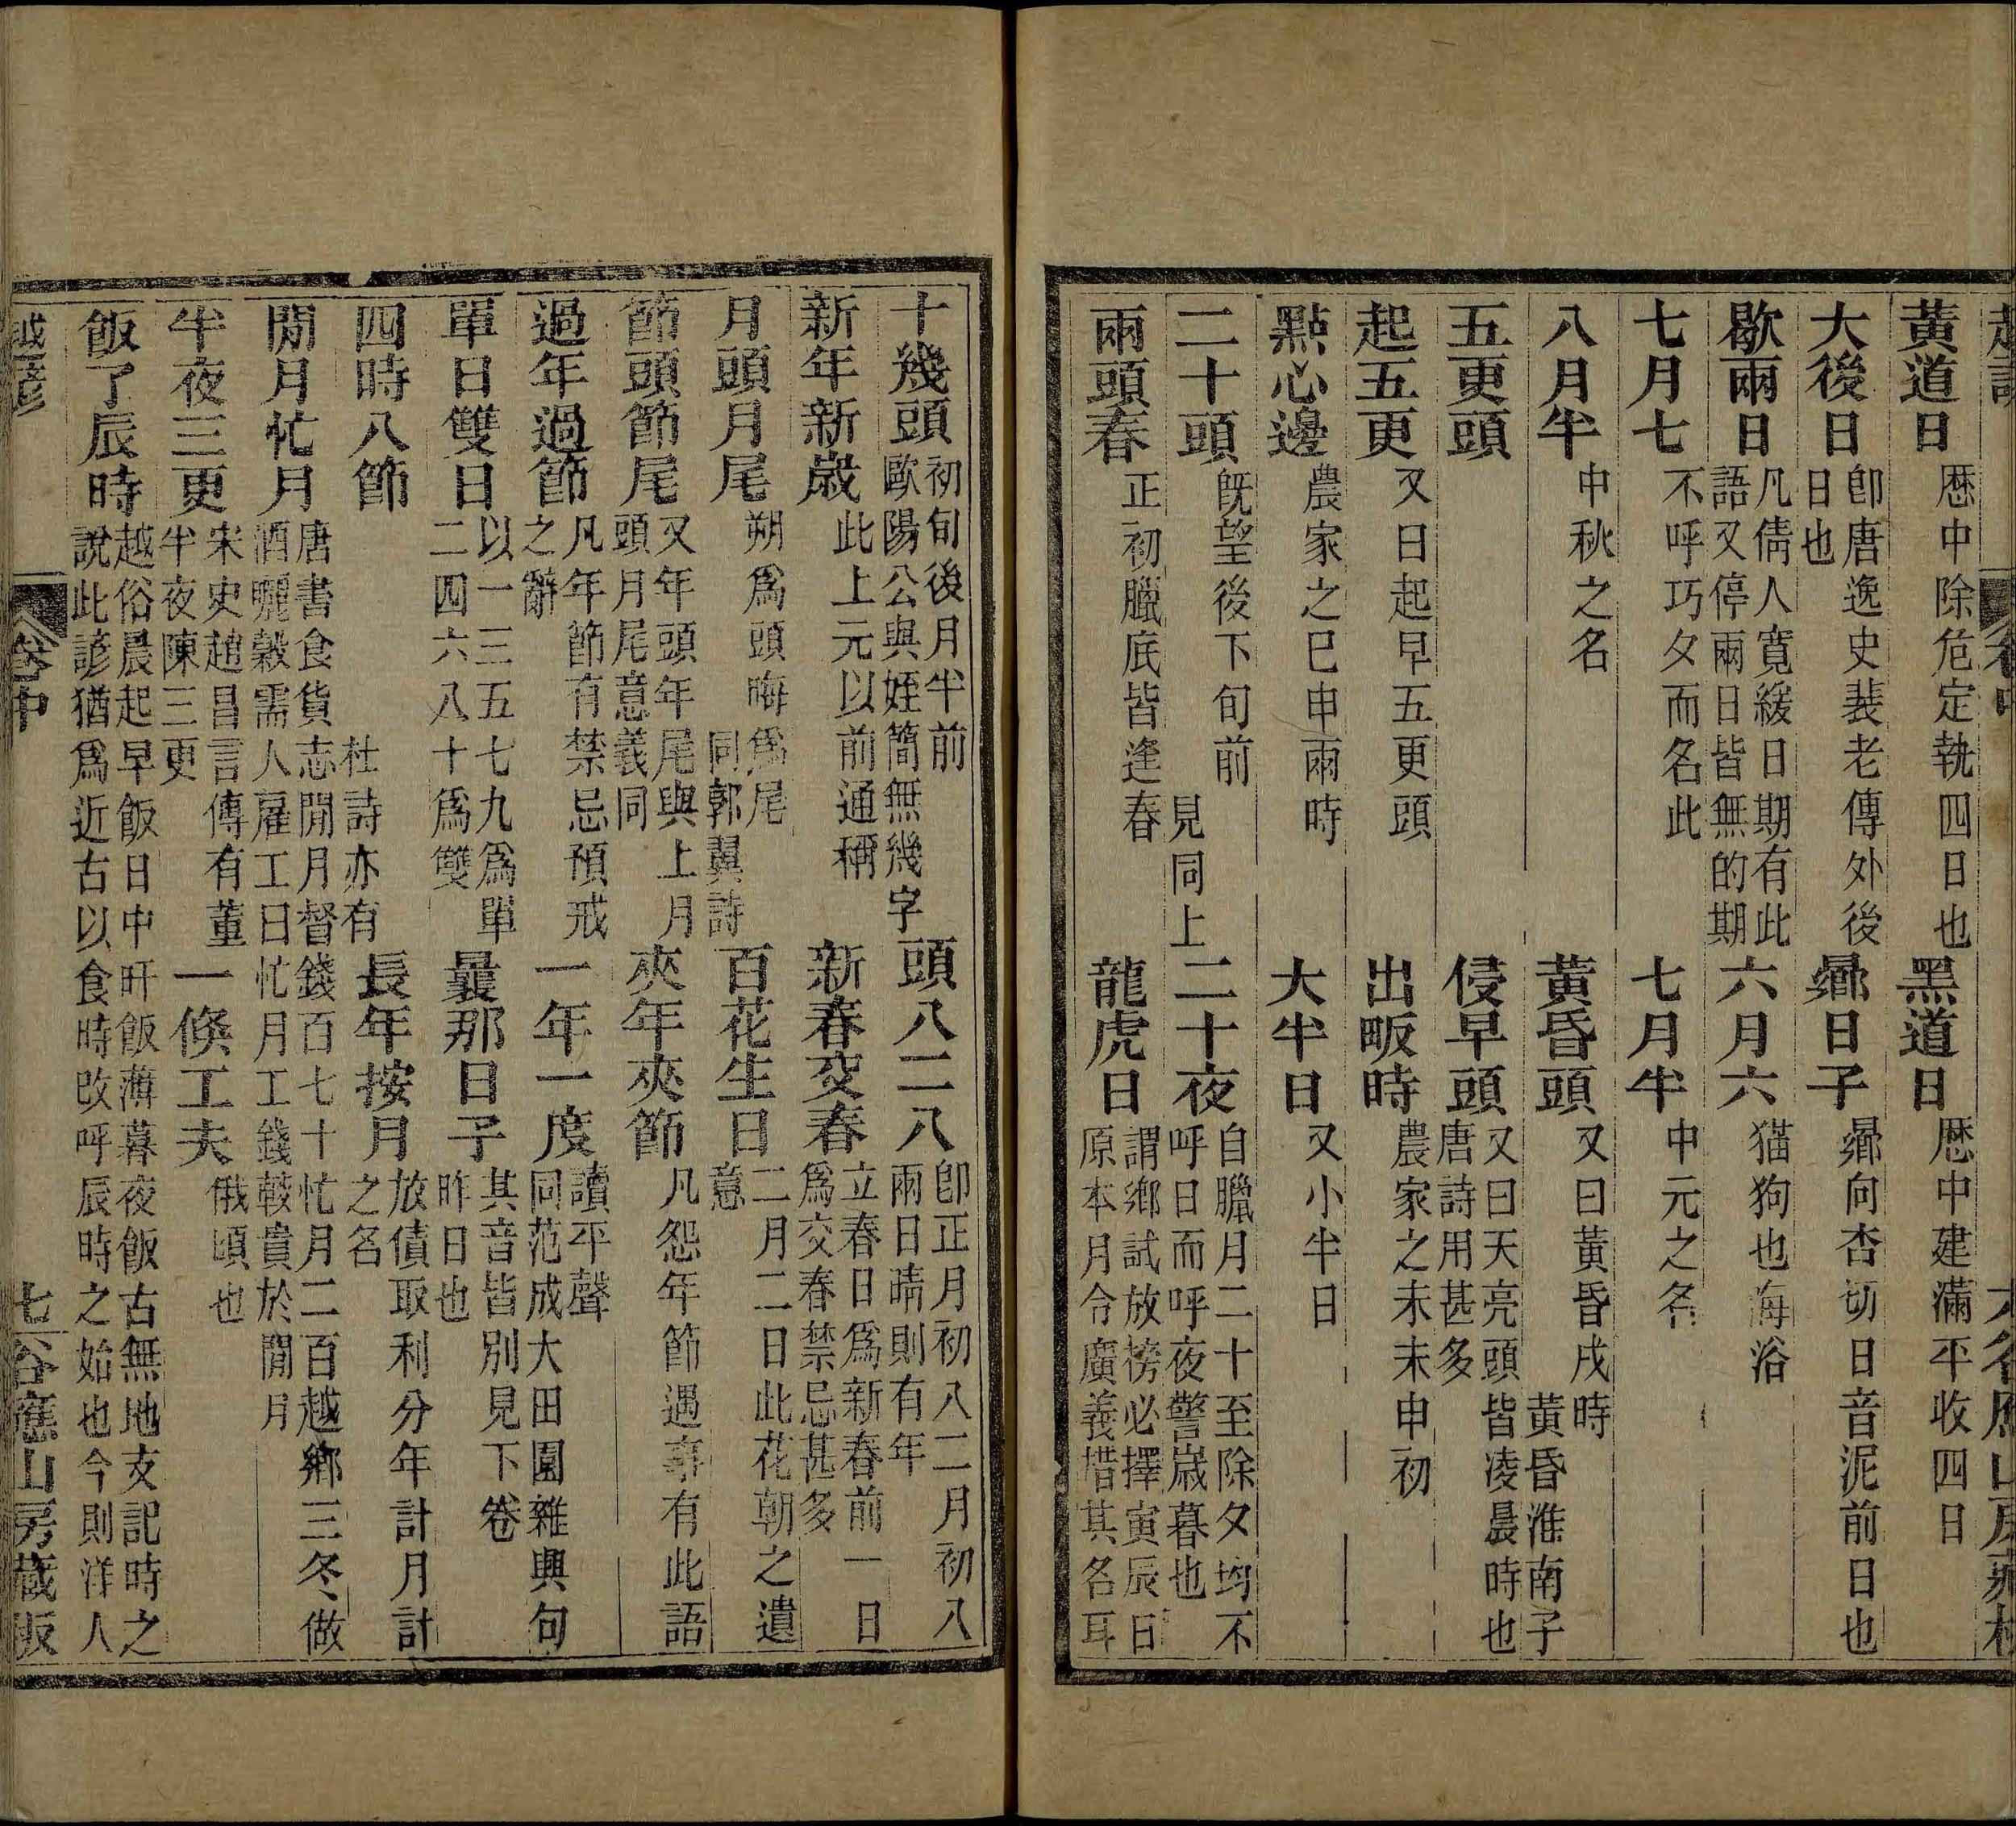 黃道日厯中除危定執四日也黑道日厯中建滿平收四日
大後日卽唐逸史裴老傳外後日也曏日子曏向杏切日音泥前日也
歇兩日凡倩人寬緩日期有此語又停兩日皆無的期六月六猫狗也海浴
七月七不呼巧夕而名此七月半中元之名
八月半中秋之名黃昏頭又曰黃昏戌時黃昏淮南子
五更頭侵早頭又曰天亮頭唐詩用甚多皆凌晨時也
起五更又曰起早五更頭出畈時農家之未末申初
點心邊農家之巳申兩時大半日又小半日
二十頭旣望後下旬前見同上二十夜自臘月二十至除夕均不呼日而呼夜警歲暮也
兩頭春正初臘底皆逢春龍虎日謂鄉試放榜必擇寅辰日原本月令廣義措其名耳
十幾頭初旬後月半前歐陽公與姪簡無幾字頭八二八卽正月初八二月初八兩日晴則有年
新年新歲此上元以前通稱新春交春立春日爲新春前一日爲交春禁忌甚多
月頭月尾朔爲頭晦爲尾同郭翼詩百花生日二月二日此花朝之遺意
節頭節尾又年頭年尾與上月頭月尾意義同夾年夾節凡怨年節遇事有此語
過年過節凡年節有禁忌預戒之辭一年一度讀平聲同范成大田園雜興句
單日雙日以一三五七九爲單二四六八十爲雙曩那日子其音皆別見下卷昨日也
四時八節杜詩亦有長年按月放債取利分年計月計之名
閒月忙月唐書食貨志閒月督錢百七十忙月二百越鄉三冬做酒曬穀需人雇工曰忙月工錢較貴於閒月
半夜三更宋史趙昌言傳有董半夜陳三更一倏工夫俄頃也
飯了辰時越俗晨起早飯日中旰飯薄暮夜飯古無地支記時之說此諺猶爲近古以食時改呼辰時之始也今則洋人
越諺 卷中 七 谷應山房藏板